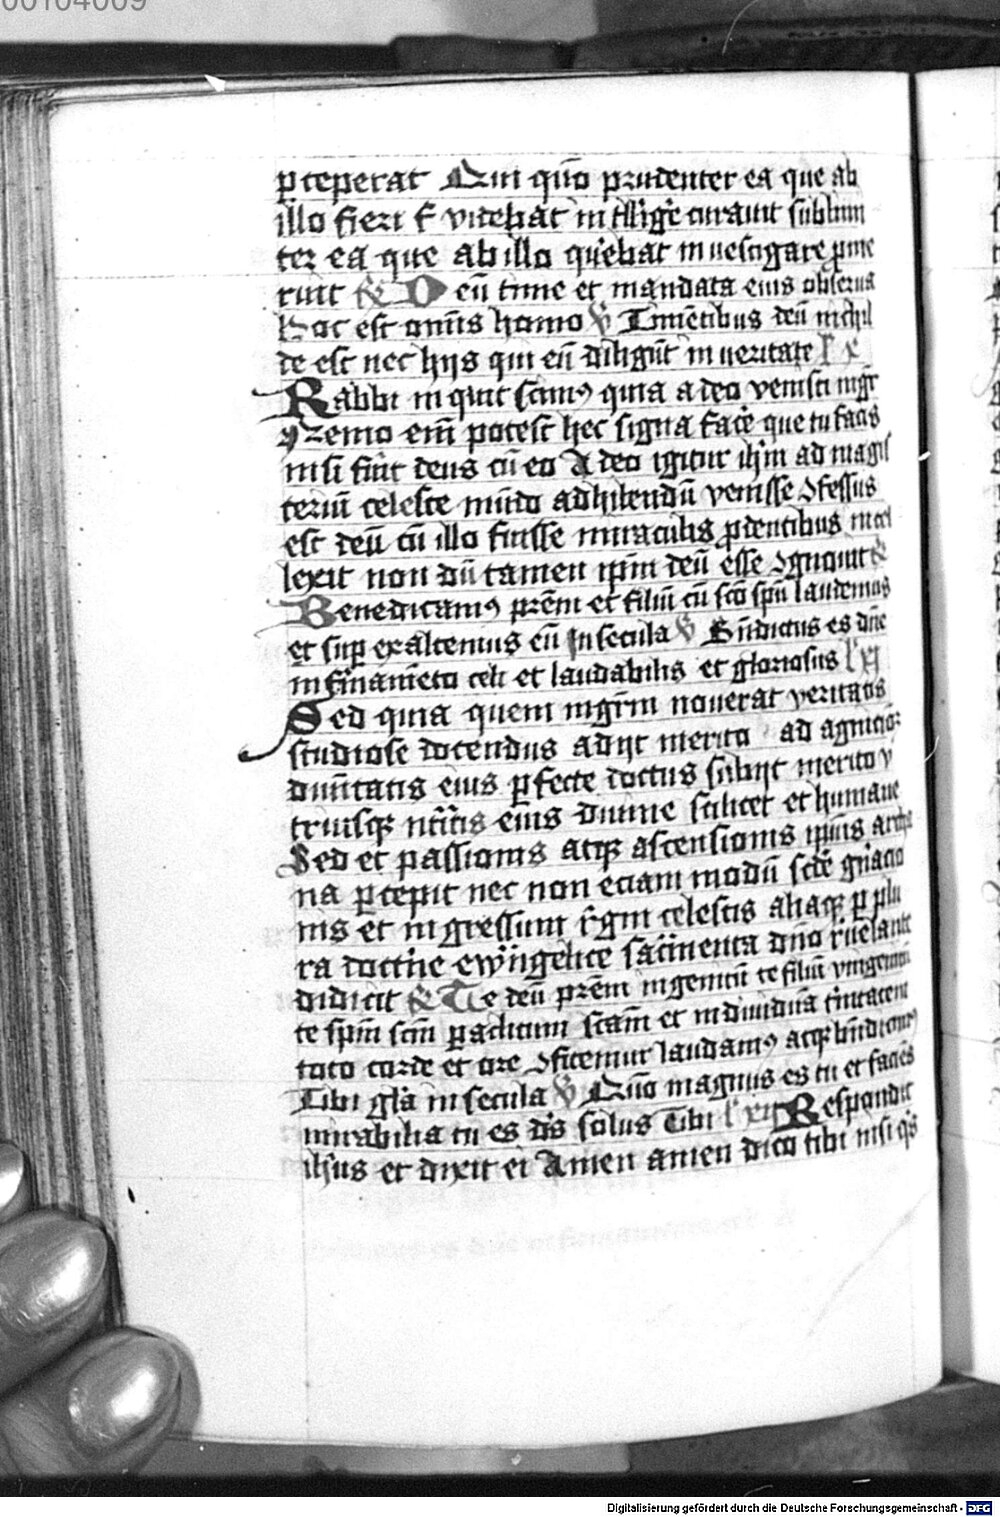 00104009
ꝑceperat Qui quo prudenter ea que ab
illo fieri videbat intellige curauit
ter ea que ab illo querebat inuestigare
ruit Deū time et mandata eius obserua
hoc est omnis homo Timentibus deū nichil
de est nec hijs qui eū diligūt in ueritate
Rabbi inquit scimꝰ quia a deo venisti
Nemo em̄ potest hec signa face que tu facis
nisi fuit deus cū eo A deo igitur ad magis
teriū celeste mūdo adhibendū venisse ↄfessus
est deū cū illo fuisse miraculis ꝓdentibus intel
lexit non dū tamen ipm̄ deū esse ↄgnouit
Benedicamꝰ prēm et filiū cū scō spū laudemus
et suꝑ exaltemus eū In secula Bn̄dictus es dn̄e
in firmamēto celi et laudabilis et gloriosus
Sed quia quem mgrm̄ nouerat veritatis
studiose docendus adijt merito ad agnicio
diuinitatis eius ꝑfecte doctus subijt merito v
triusqꝫ eius diuine scilicet et humane
Sed et passionis atqꝫ ascensionis ipius archa
na ꝑcepit nec non eciam modū scde gnacio
nis et ingressum celestis aliaqꝫ ꝑ plu
ra doctrine ewngelice sacrmenta dn̄o reuelante
didicit Te deū prēm ingenitū te filiū vnigenitū
te spm̄ scm̄ ꝑaclitum scam̄ et indiuiduā trinitatem
toto corde et ore ↄfitemur laudamꝰ atqꝫ bn̄dicimꝰ
Tibi gla in secula Qm̄o magnus es tu et faciēs
mirabilia tu es ds̄ solus Tibi Respondit
ihsus et dixit ei Amen amen dico tibi nisi qs
Digitalisierung gefördert durch die Deutsche Forschungsgemeinschaft - DFG